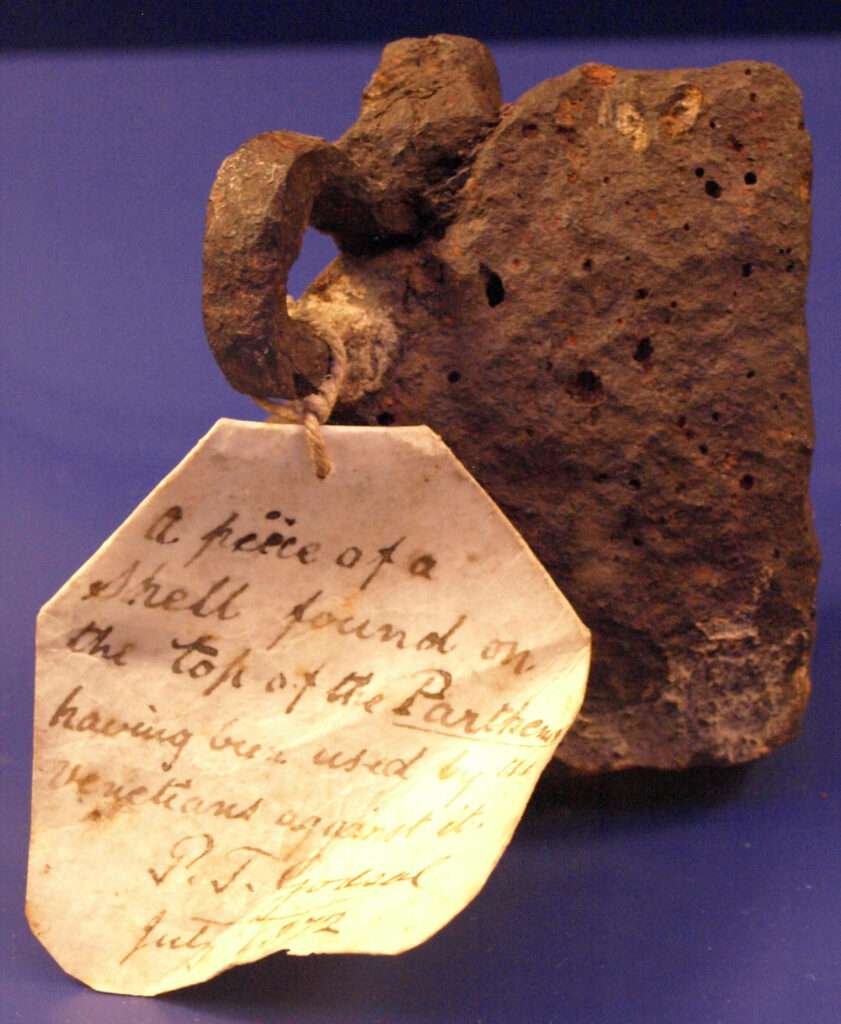 A piece of a
shell found on
the top of the Parthenon
having been used by the
venetians against it.
P. T. Godsal
July 1872